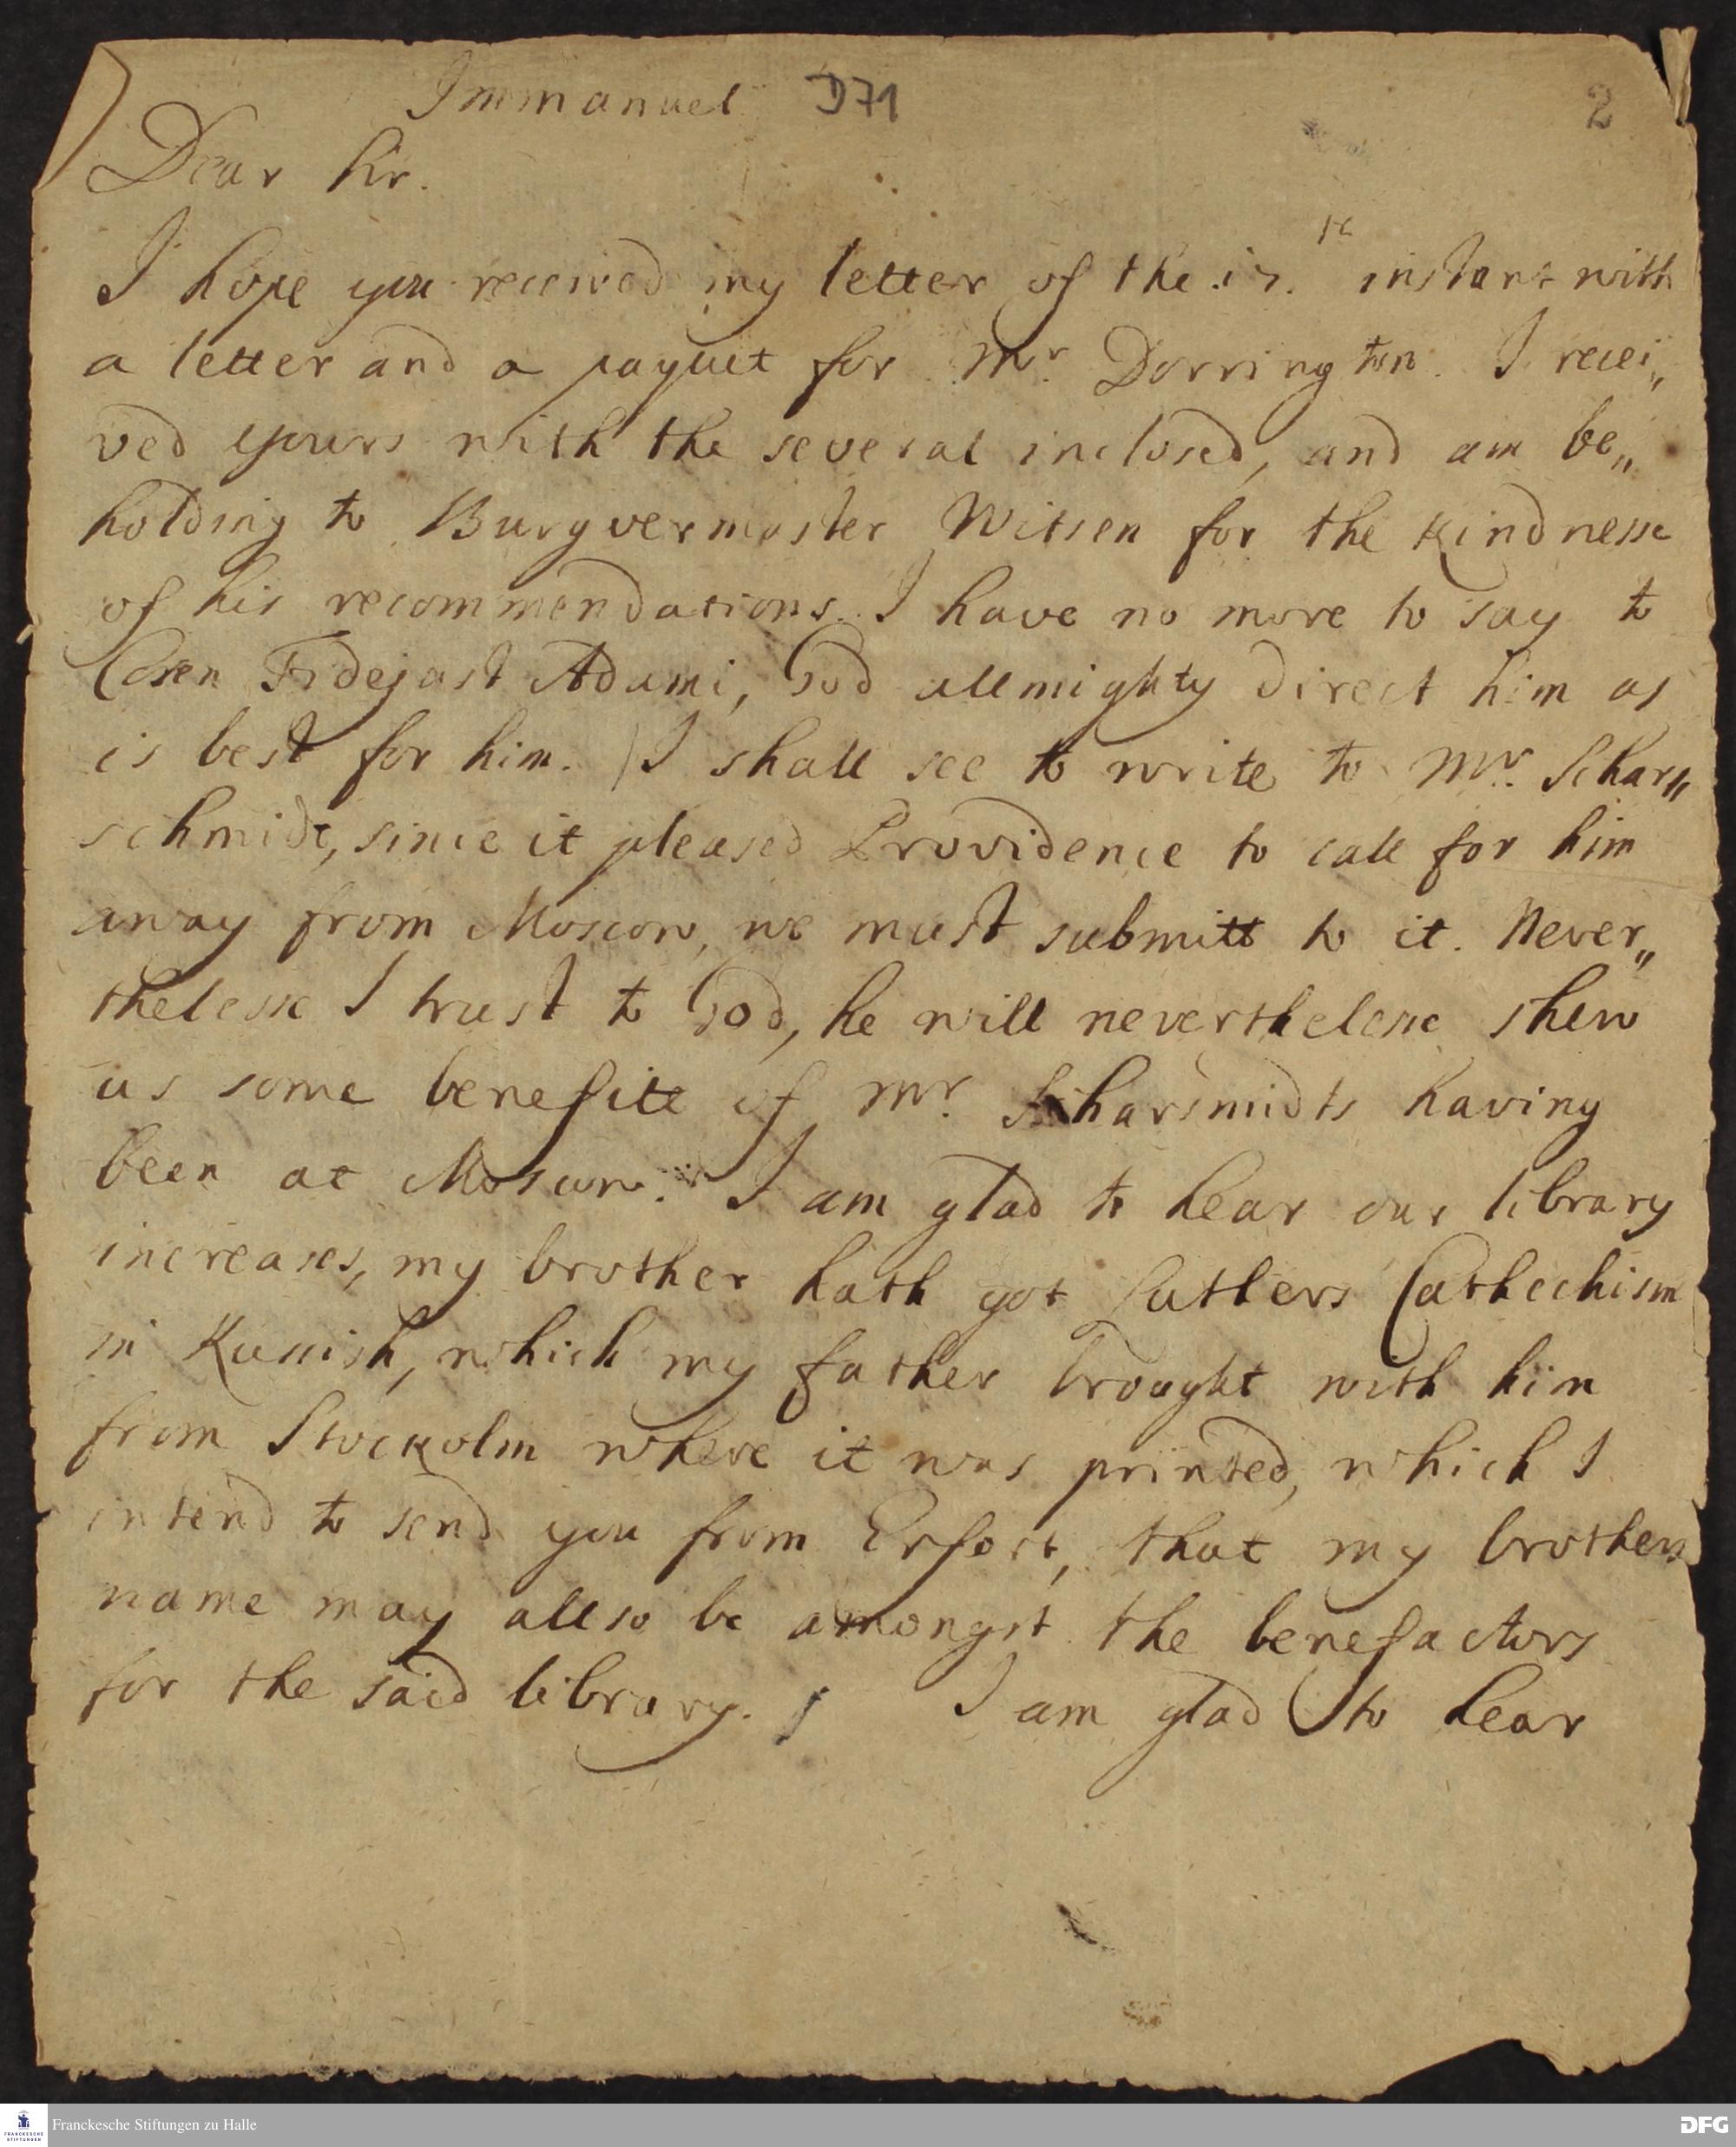 Immanuel D71 2
Dear Sir.
I hope you received my letter of the instant with
a letter and a paquet for Mr Dorrington. I recei„
ved yours with the several inclosed, and am be„
holding to Burguermaster Witsen for the Kindnesse
of his recommendations. I have no more to say to
Adami, God allmighty direct him as
is best for him. I shall see to write to Mr. Schar„
schmidt, since it pleased Providence to call for him
away from Moscow, we must submitt to it. Never„
thelesse I trust to God, he will neverthelesse shew
us some benefite of Mr. Scharsmidts having
been at Moscow. I am glad to hear our library
increases, my brother hath got Lutlers Cathechism
in which my father brought with him
from Stockolm where it was printed, which I
intend to send you from Erfort, that my brothers
name may allso be amongst the benefactors
for the said library. I am glad to hear
Franckesche Stiftungen zu Halle
DFG